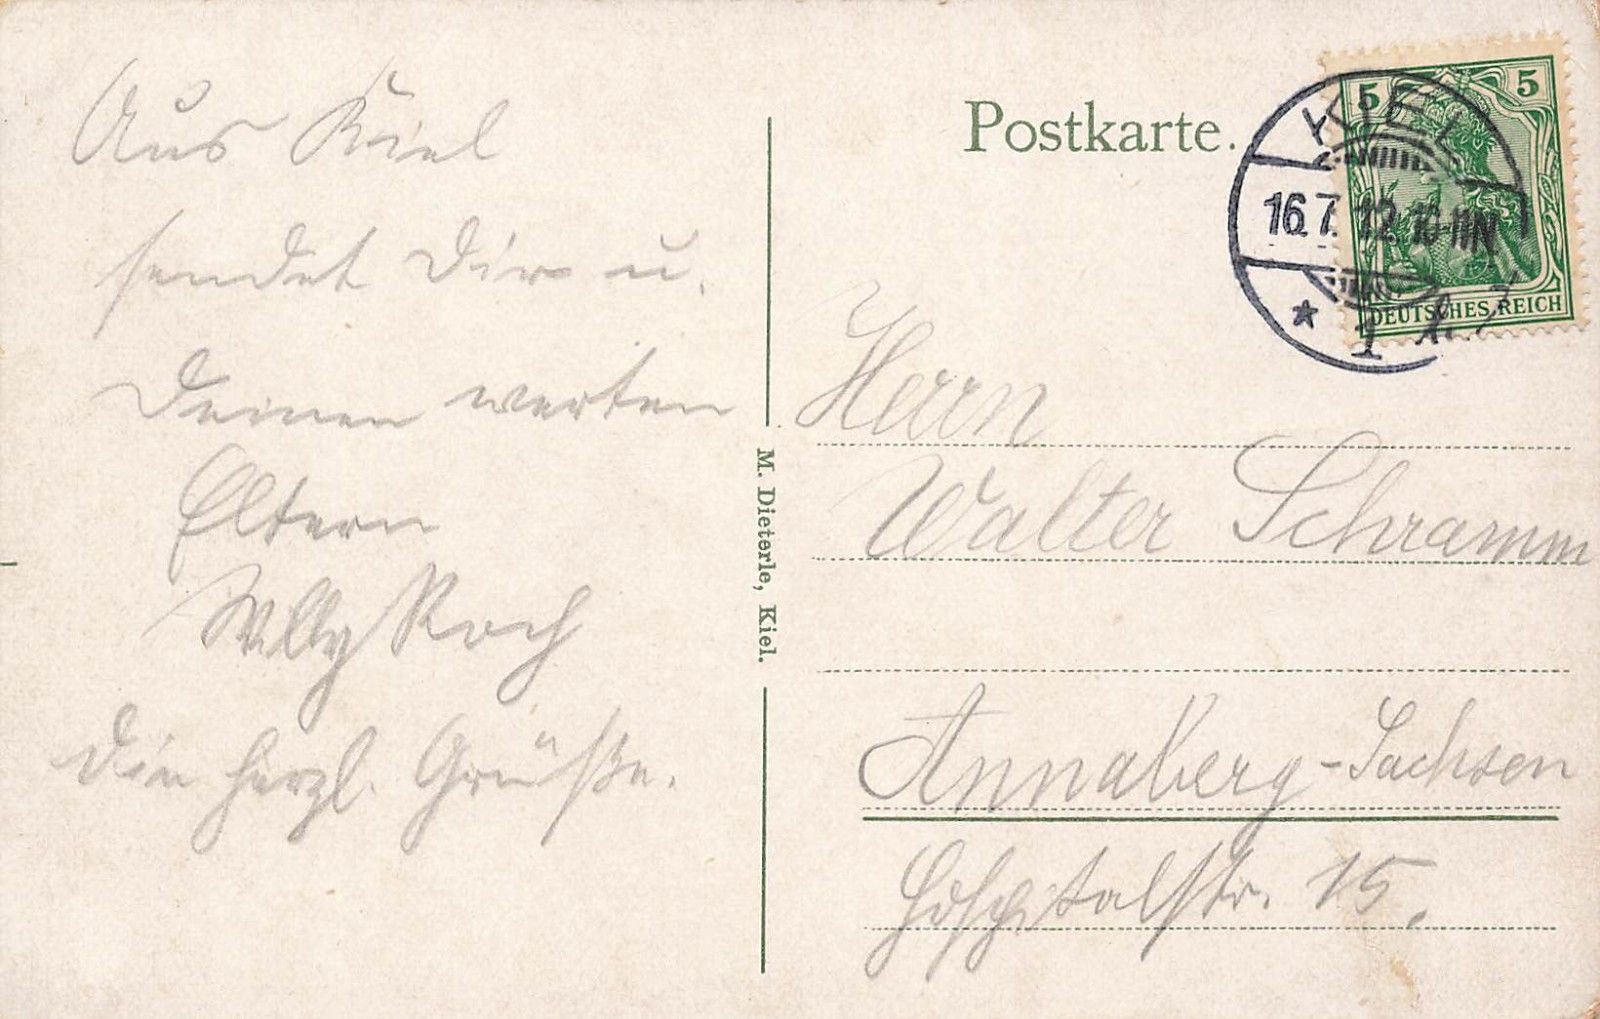 Aus Kiel
sendet Dir u.
Deinen werten
Eltern
Willy Koch
die herzl. Grüße.
Postkarte.
M. Dieterle, Kiel.
5 5
DEUTSCHES REICH
KIEL
16.7.12. 10-11N
* 1
Herrn
Walter Schramm
Annaberg-Sachsen
Hospitalstr. 15.